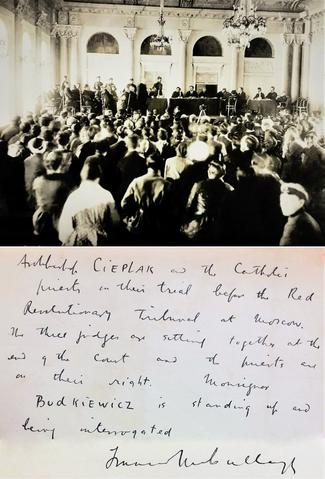 Archbishop CIEPLAK and the Catholic
priests on their trial before the Red
Revolutionary Tribunal at Moscow.
The three judges are sitting together at the
end of the Court and the priests are
on their right. Monsignor
BUDKIEWICZ is standing up and
being interrogated
Francis McCullagh